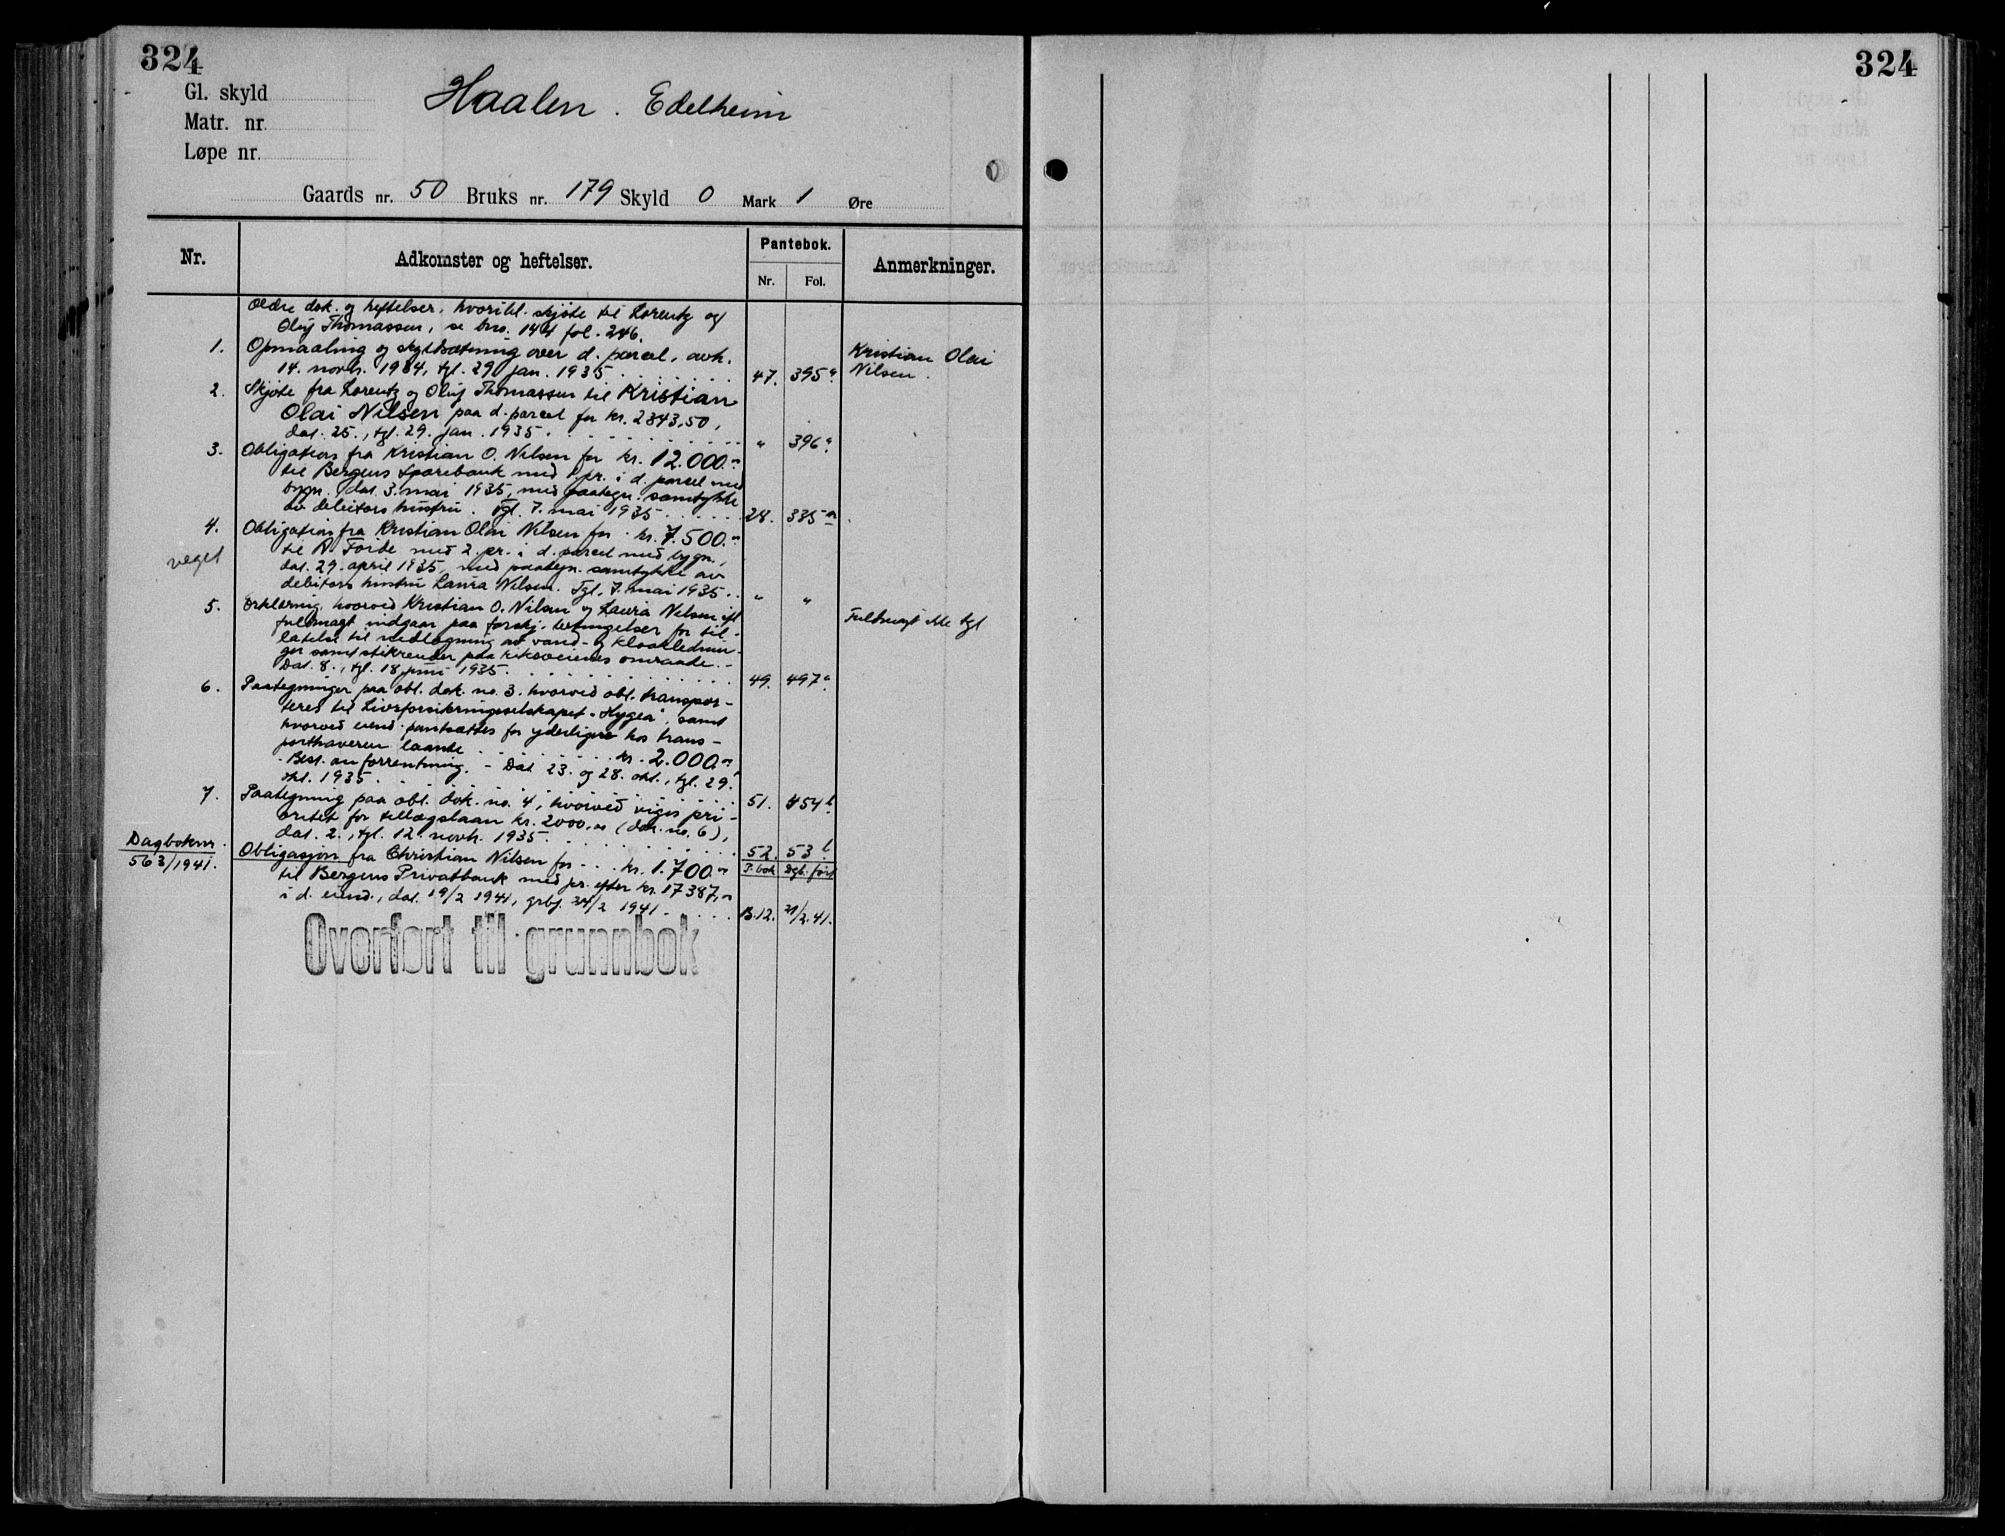 324
324
Gl. skyld
Haalen. Edelheim
Matr. nr.
Løpe nr.
Gaards nr. 50 Bruks nr. 179 Skyld 0 Mark 1 Øre
Nr.
Adkomster og heftelser.
Pantebok.
Nr. Fol.
Anmerkninger.
Ældre dok. og heftelser, hvoribl. skjøte til Lorentz og
Oluf Thomassen, se bno. 144 fol. 246.
1. Opmaaling og skyldsætning over d. parcel, avh.
14. novb. 1934, tgl. 29 jan. 1935 47. 395a
Kristian Olai
Nilsen.
2. Skjøte fra Lorentz og Oluf Thomassen til Kristian
Olai Nilsen paa d. parcel for kr. 2343,50,
dat. 25., tgl. 29. jan. 1935. " 396a
3. Obligation fra Kristian O. Nilsen for kr. 12.000.-
til Bergens Sparebank med 1 pr. i d. parcel med
bygn. dat. 3. mai 1935, med paategn. samtykke
av debitors hustru. Tgl. 7. mai 1935 28. 335
4. Obligation fra Kristian Olai Nilsen for kr. 7.500.-
til R. med 2. pr. i d. parcel med bygn.,
dat. 29. april 1935, med paategn. samtykke av
debitors hustru Laura Nilsen. Tgl. 7. mai 1935. " "
5. Erklæring, hvorved Kristian O. Nilsen og Laura Nilsen
fuldmagt indgaar paa forskj. betingelser for til-
latelse til nedlægning av vand- og kloaklednin-
ger samt stikrender paa riksveienes omraade.-
Dat. 8., tgl. 18 juni 1935. 49. 497a
Fuldmagt ikke tgl
6. Paategninger paa obl. dok. no. 3. hvorved obl. transpor-
teres til Livsforsikringsselskapet "Hygea", samt
hvorved eiend. pantsættes for yderligere hos trans-
porthaveren laante kr. 2.000.-
Best. om forrentning. - Dat. 23. og 28. okt., tgl. 29.
okt. 1935 51. 454b
7. Paategning paa obl. dok. no. 4, hvorved viges pri-
oritet for tillægslaan kr. 2000,- (dok. no. 6),
dat. 2., tgl. 12. novb. 1935 52. 53b
Dagboknr.
563/1941.
Obligasjon fra Christian Nilsen for kr. 1.700.-
P. bok Dgb. ført
til Bergens Privatbank med pr. efter kr. 17387,-
i d. eiend., dat. 19/2 1941, 24/2 1941. B.12. 21/2.41.
Overført til grunnbok